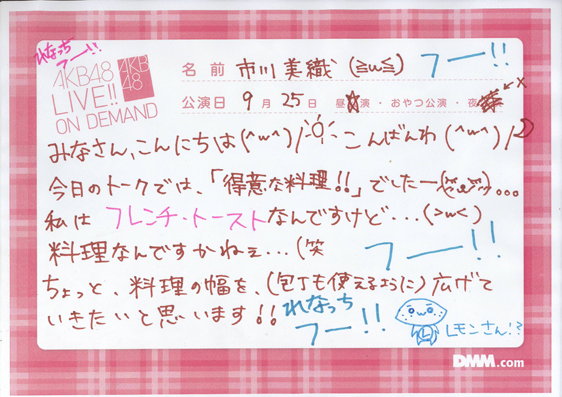 れなっち
フー!!
AKB48
LIVE!!
ON DEMAND
AKB
48
名前 市川美織 (≧w≦) フー!!
公演日 9月25日 昼公演・おやつ公演・夜公演 ←×
みなさん、こんにちは(^w^)/ こんばんわ(^w^)/
今日のトークでは、「得意な料理!!」でしたー...
私はフレンチ・トーストなんですけど...(>w<)
料理なんですかねぇ...(笑 フー!!
ちょっと、料理の幅を、(包丁も使えるように)広げて
いきたいと思います!!
れなっち
フー!!
L
レモンさん!?
DMM.com